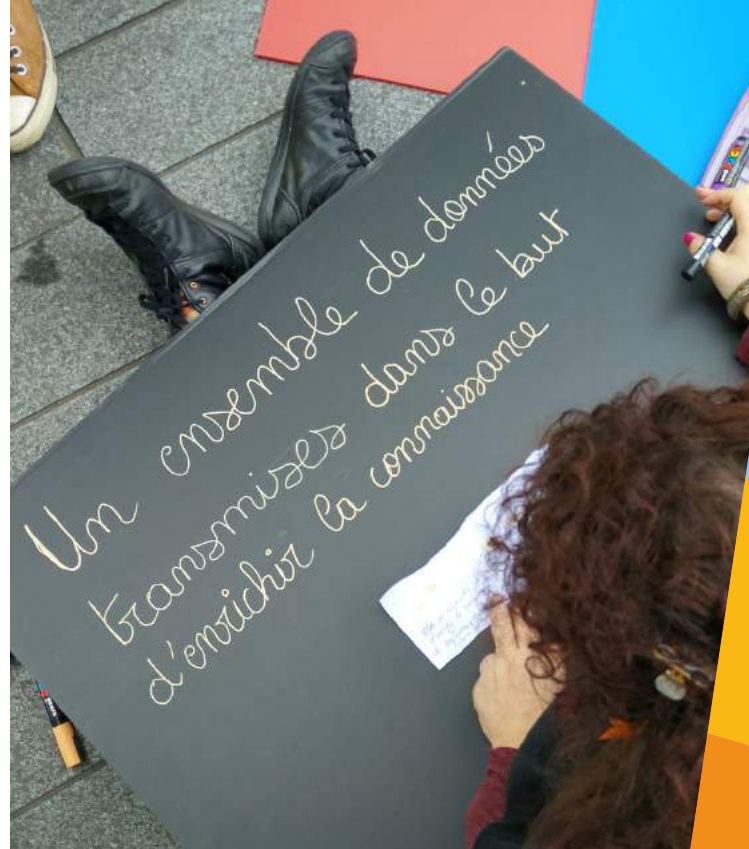 Un ensemble de données
transmises dans le but
d'enrichir la connaissance